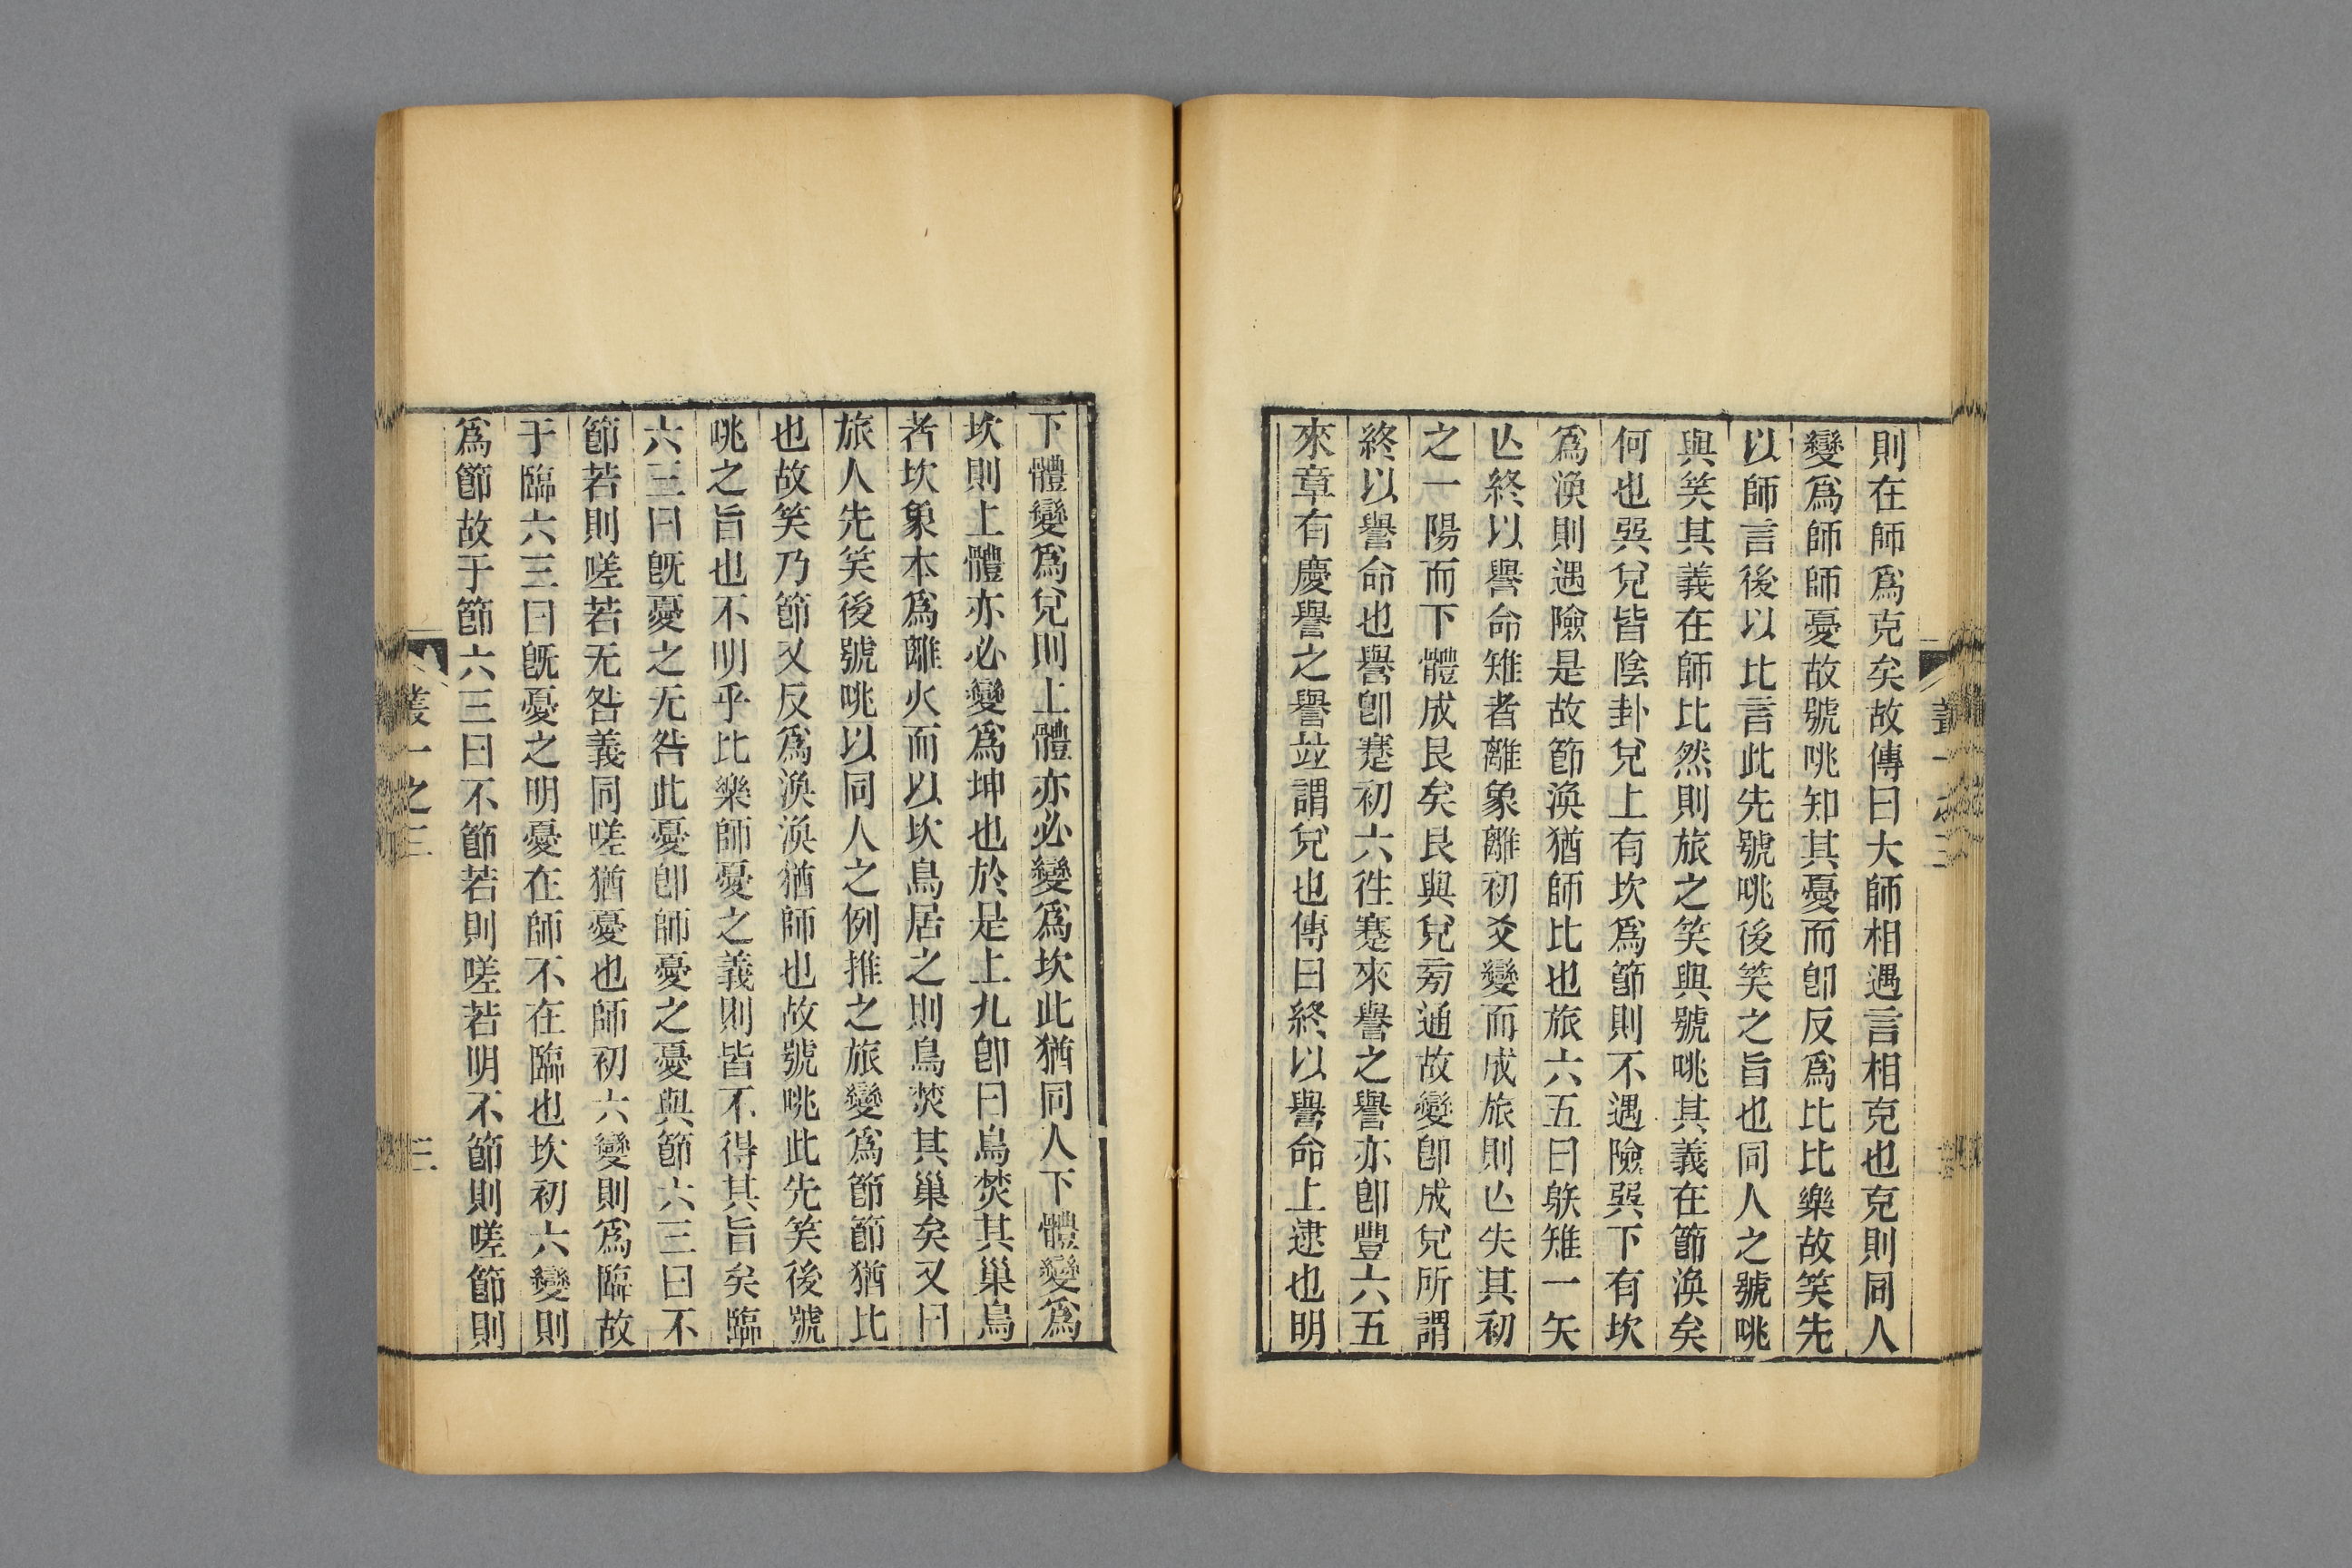 則在師爲克矣故傳曰大師相遇言相克也克則同人
變爲師師憂故號咷知其憂而卽反爲比比樂故笑先
以師言後以比言此先號咷後笑之旨也同人之號咷
與笑其義在師比然則旅之笑與號咷其義在節渙矣
何也巽兌皆陰卦兌上有坎爲節則不遇險巽下有坎
爲渙則遇險是故節渙猶師比也旅六五曰䠶雉一矢
亾終以譽命雉者離象離初爻變而成旅則亾失其初
之一陽而下體成艮矣艮與兌㫄通故變卽成兌所謂
終以譽命也譽卽蹇初六徃蹇來譽之譽亦卽豐六五
來章有慶譽之譽竝謂兌也傳曰終以譽命上逮也明
下體變爲兌則上體亦必變爲坎此猶同人下體變爲
坎則上體亦必變爲坤也於是上九卽曰鳥焚其巢鳥
者坎象本爲離火而以坎鳥居之則鳥焚其巢矣又曰
旅人先笑後號咷以同人之例推之旅變爲節節猶比
也故笑乃節又反爲渙渙猶師也故號咷此先笑後號
咷之旨也不明乎比樂師憂之義則皆不得其旨矣臨
六三曰旣憂之无咎此憂卽師憂之憂與節六三曰不
節若則嗟若无咎義同嗟猶憂也師初六變則爲臨故
于臨六三曰旣憂之明憂在師不在臨也坎初六變則
爲節故于節六三曰不節若則嗟若明不節則嗟節則
叢一之三
三